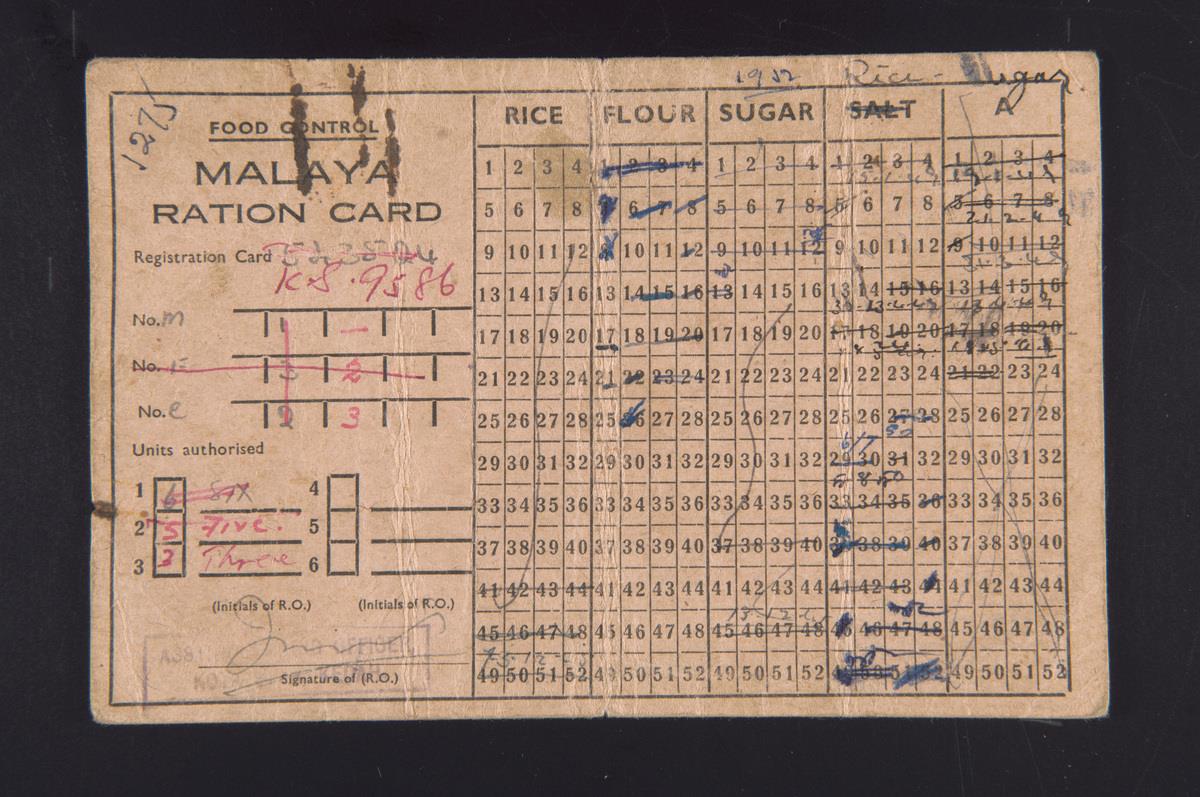 1275
1952 Rice - Sugar
FOOD CONTROL
MALAYA
RATION CARD
Registration Card
K.S. 9586
No. m 1 —
No. F 2
No. c 2 3
Units authorised
1 6 SIX 4
2 5 Five. 5
3 3 Three 6
(Initials of R.O.) (Initials of R.O.)
Signature of (R.O.)
RICE FLOUR SUGAR SALT A
1 2 3 4 1 2 3 4 1 2 3 4 1 2 3 4 1 2 3 4
5 6 7 8 5 6 7 8 5 6 7 8 5 6 7 8 5 6 7 8
9 10 11 12 9 10 11 12 9 10 11 12 9 10 11 12 9 10 11 12
13 14 15 16 13 14 15 16 13 14 15 16 13 14 15 16 13 14 15 16
17 18 19 20 17 18 19 20 17 18 19 20 17 18 19 20 17 18 19 20
21 22 23 24 21 22 23 24 21 22 23 24 21 22 23 24 21 22 23 24
25 26 27 28 25 26 27 28 25 26 27 28 25 26 27 28 25 26 27 28
29 30 31 32 29 30 31 32 29 30 31 32 29 30 31 32 29 30 31 32
33 34 35 36 33 34 35 36 33 34 35 36 33 34 35 36 33 34 35 36
37 38 39 40 37 38 39 40 37 38 39 40 37 38 39 40 37 38 39 40
41 42 43 44 41 42 43 44 41 42 43 44 41 42 43 44 41 42 43 44
45 46 47 48 45 46 47 48 45 46 47 48 45 46 47 48 45 46 47 48
49 50 51 52 49 50 51 52 49 50 51 52 49 50 51 52 49 50 51 52